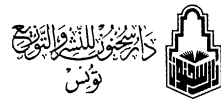 دار سحنون للنشر والتوزيع
تونس